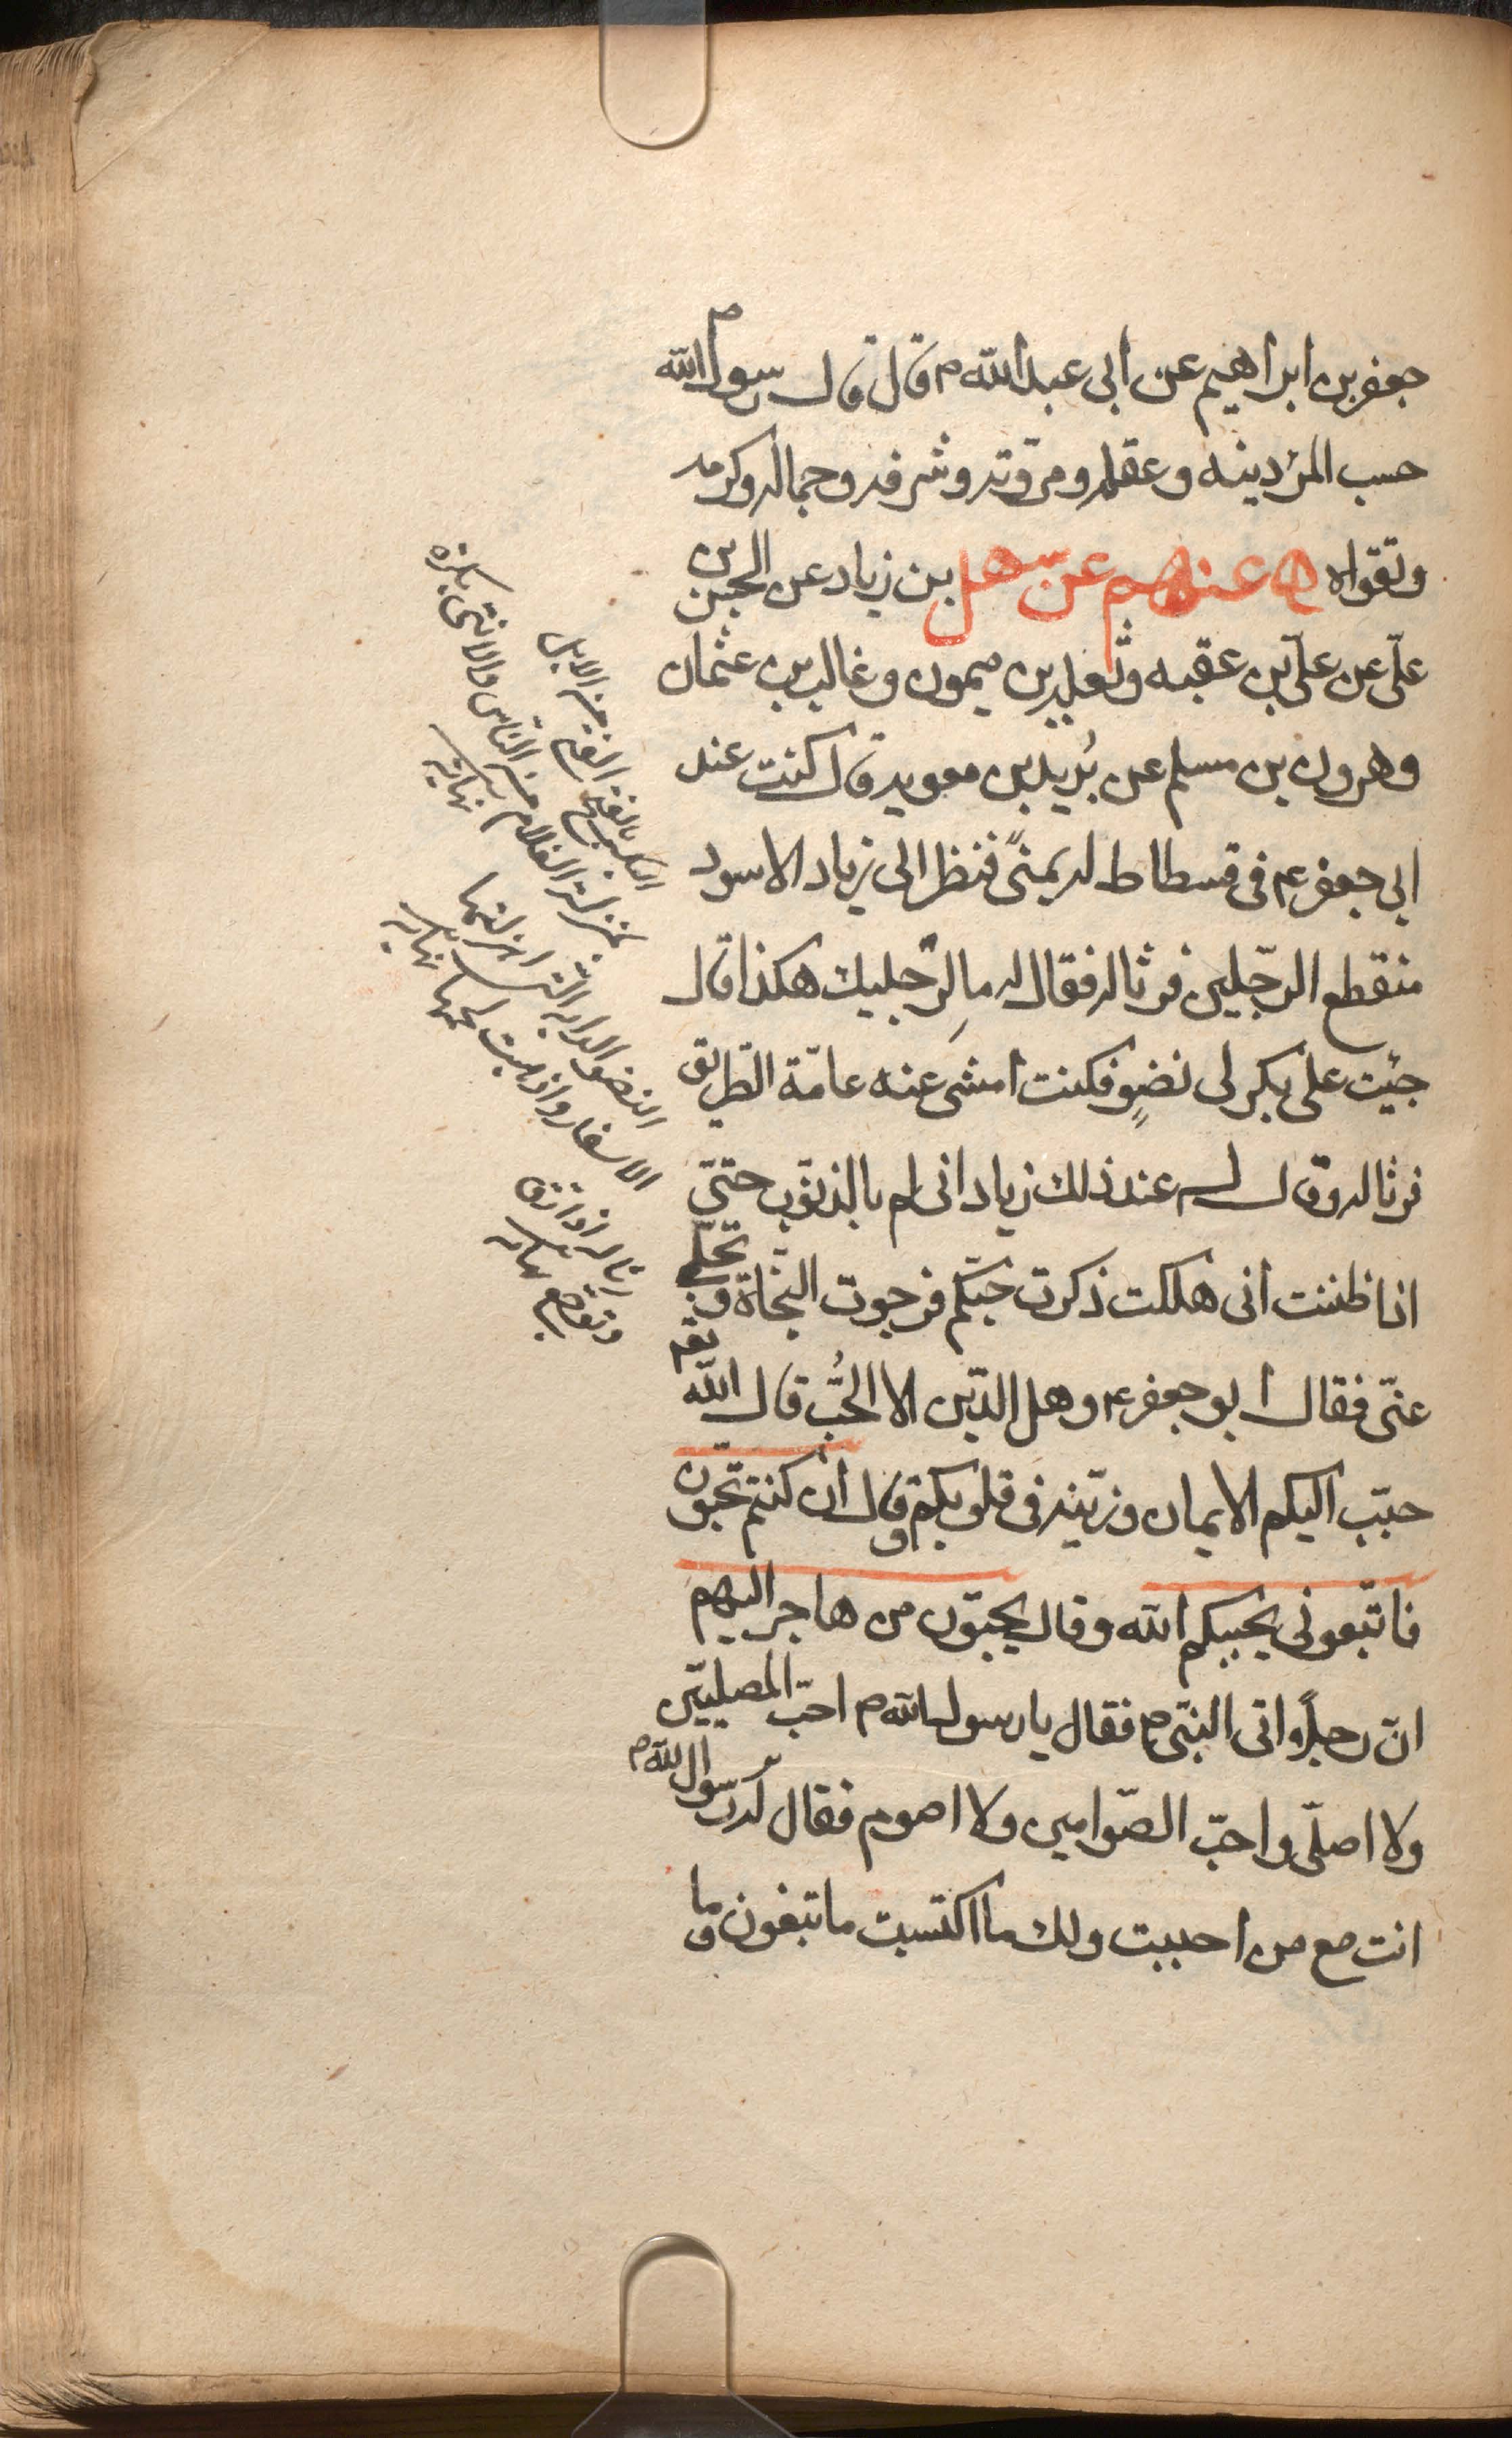 جعفر بن ابراهيم عن ابى عبد الله م قال قال رسول الله ص
حسب المرء دينه وعقله ومروّته وشرفه وجماله وكرمه
وتقواه ھ عنهم عن سهل بن زياد عن الحسن بن
علىّ عن علىّ بن عقبه وثعلبه بن ميمون وغالب بن عثمان
وهرون بن مسلم عن بُريد بن معويه قال كنت عند
ابى جعفر ع فى فسطاط له بمنىً فنظر الى زياد الاسود
منقطع الرّجلين فرثا له فقال له ما لِرّجليك هكذا قال
جئت على بكر لى نضوٍ فكنت امشى عنه عامّة الطّريق
فرثا له وقال له عند ذلك زياد انى الم بالذنوب حتىّ
اذا ظننت انى هلكت ذكرت حبّكم فرجوت النجّاة وتجلّى
عنىّ فقال ابو جعفر ع وهل الدّين الا الحُبّ قال الله تعم
حبّب اليكم الايمان وزيّنه فى قلوبكم وقال ان كنتم تحبّون
الله فاتّبعونى يحببكم الله وقال يحبّون من هاجر اليهم
انّ رجلًا اتى النبىّ ص فقال يا رسول الله ص احبّ المصلّين
ولا اصلّى واحبّ الصّوامين ولا اصوم فقال له رسول الله ص
انت مع من احببت ولك ما اكتسبت ما تبغون وما
البكر بالفتح الفتى من الابل
بمنزلة الغلام من الناس والانثى بكره
نهايه
النضو الدابه التى اهزلتها
الاسفار واذهبت لحمها نهايه
رثا له اذا رق
وتوجع نهايه